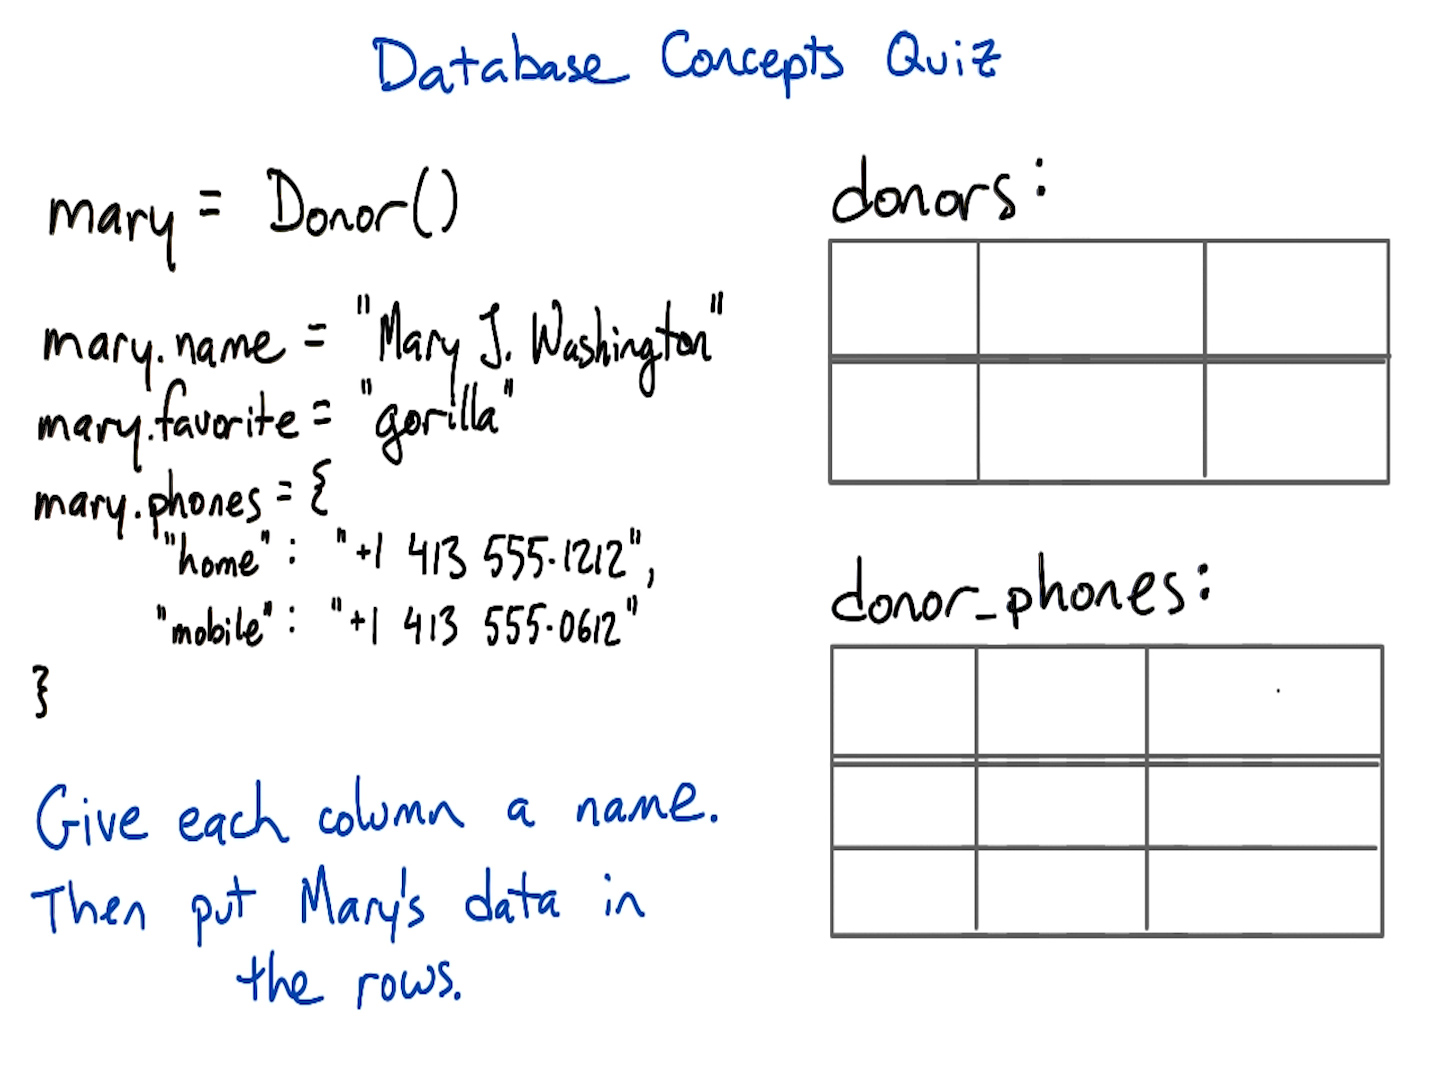 Database Concepts Quiz
mary = Donor()
mary.name = "Mary J. Washington"
mary.favorite = "gorilla"
mary.phones = {
"home": "+1 413 555-1212",
"mobile": "+1 413 555-0612"
}
Give each column a name.
Then put Mary's data in
the rows.
donors:
donor_phones: